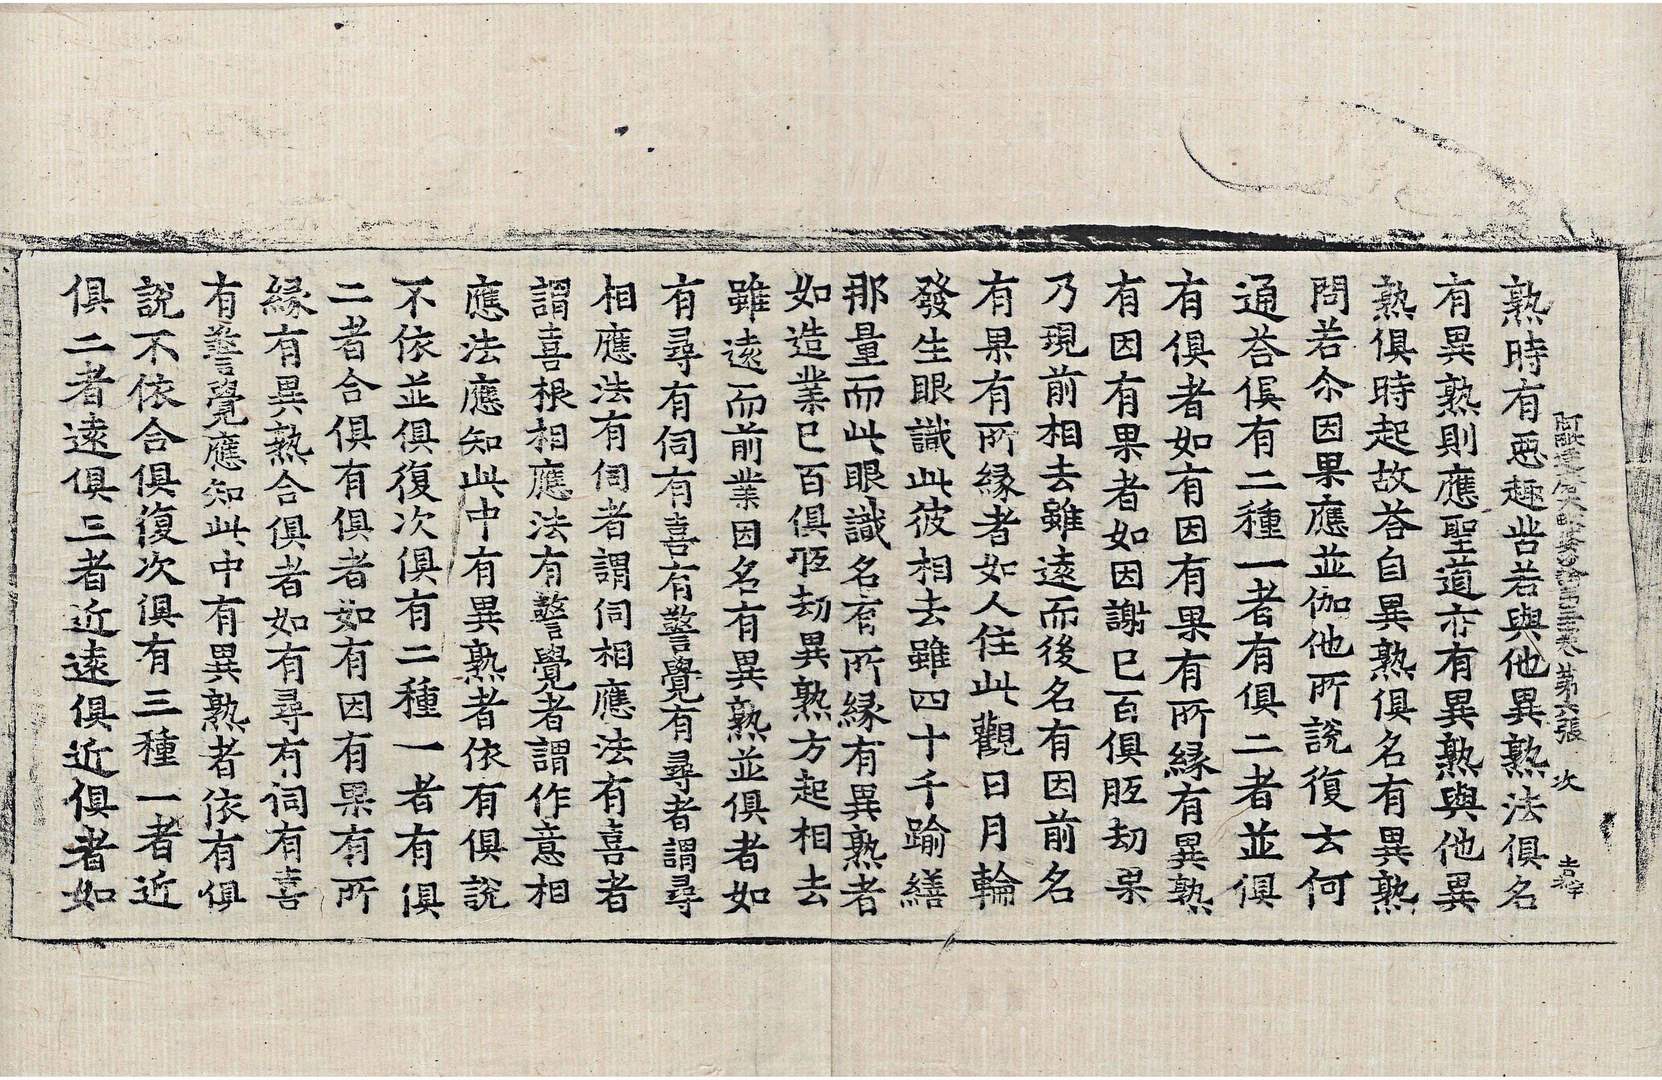 熟時有惡趣苦若與他異熟法俱名
有異熟則應聖道亦有異熟與他異
熟俱時起故荅自異熟俱名有異熟
問若尒因果應並伽他所說復云何
通荅俱有二種一者有俱二者並俱
有俱者如有因有果有所縁有異熟
有因有果者如因謝已百俱胝劫果
乃現前相去雖遠而後名有因前名
有果有所縁者如人住此觀日月輪
發生眼識此彼相去雖四十千踰繕
那量而此眼識名有所縁有異熟者
如造業已百俱胝劫異熟方起相去
雖遠而前業因名有異熟並俱者如
有尋有伺有喜有警覺有尋者謂尋
相應法有伺者謂伺相應法有喜者
謂喜根相應法有警覺者謂作意相
應法應知此中有異熟者依有俱說
不依並俱復次俱有二種一者有俱
二者合俱有俱者如有因有果有所
縁有異熟合俱者如有尋有伺有喜
有警覺應知此中有異熟者依有俱
說不依合俱復次俱有三種一者近
俱二者遠俱三者近遠俱近俱者如
第六張 次